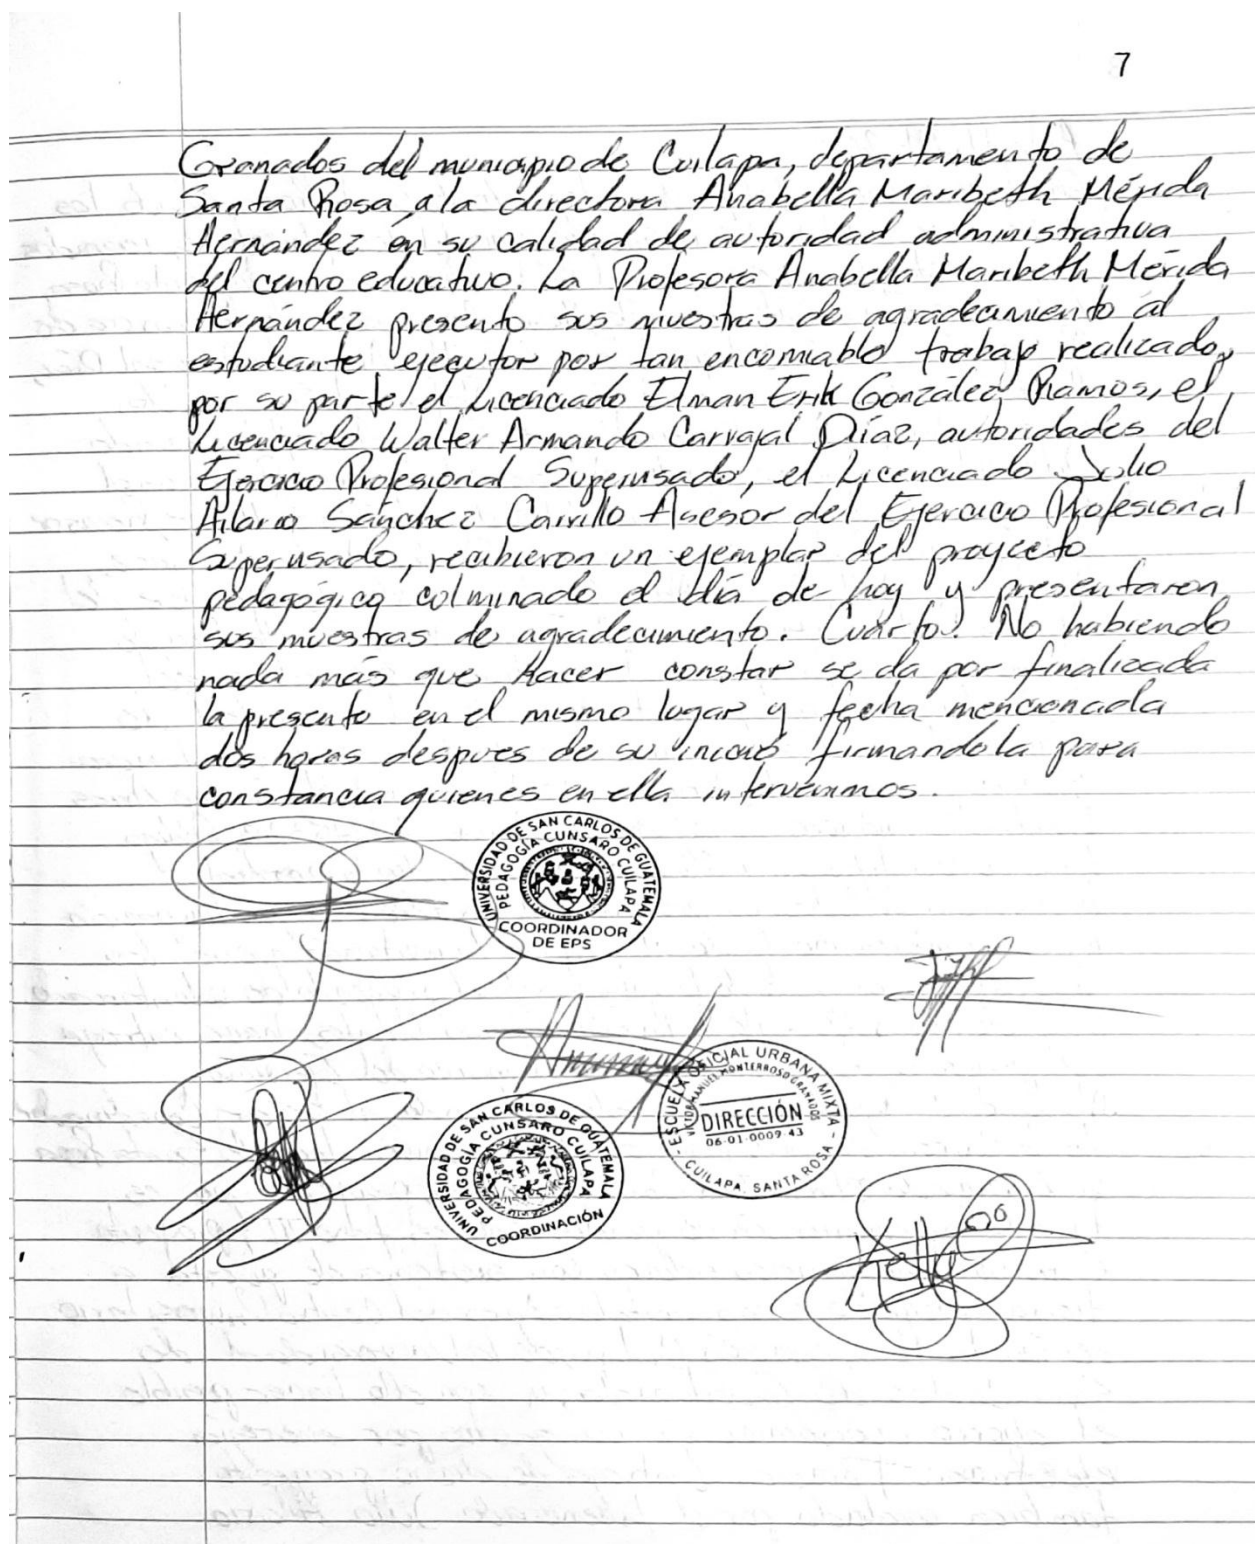 7
Granados del municipio de Cuilapa, departamento de
Santa Rosa, a la directora Anabella Maribeth Mérida
Hernández en su calidad de autoridad administrativa
del centro educativo. La Profesora Anabella Maribeth Mérida
Hernández presento sus muestras de agradecimiento al
estudiante ejecutor por tan encomiable trabajo realizado,
por su parte el Licenciado Elman Erik González Ramos, el
Licenciado Walter Armando Carvajal Díaz, autoridades del
Ejercicio Profesional Supervisado, el Licenciado Julio
Hilario Sánchez Carrillo Asesor del Ejercicio Profesional
Supervisado, recibieron un ejemplar del proyecto
pedagógico culminado el día de hoy y presentaron
sus muestras de agradecimiento. Cuarto: No habiendo
nada más que hacer constar se da por finalizada
la presente en el mismo lugar y fecha mencionada
dos horas despues de su inicio firmandola para
constancia quienes en ella intervenimos.
UNIVERSIDAD DE SAN CARLOS DE GUATEMALA
PEDAGOGÍA CUNSARO CUILAPA
COORDINADOR
DE EPS
ESCUELA OFICIAL URBANA MIXTA
VICTOR MANUEL MONTERROSO GRANADOS
DIRECCIÓN
06-01-0009-43
CUILAPA, SANTA ROSA
UNIVERSIDAD DE SAN CARLOS DE GUATEMALA
PEDAGOGÍA CUNSARO CUILAPA
COORDINACIÓN
Kelly